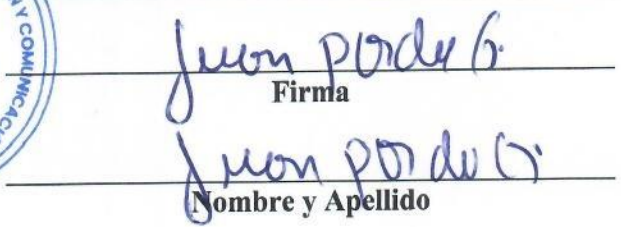 Y COMUNICACI
Juan Pardo G.
Firma
Juan Pardo G.
Nombre y Apellido